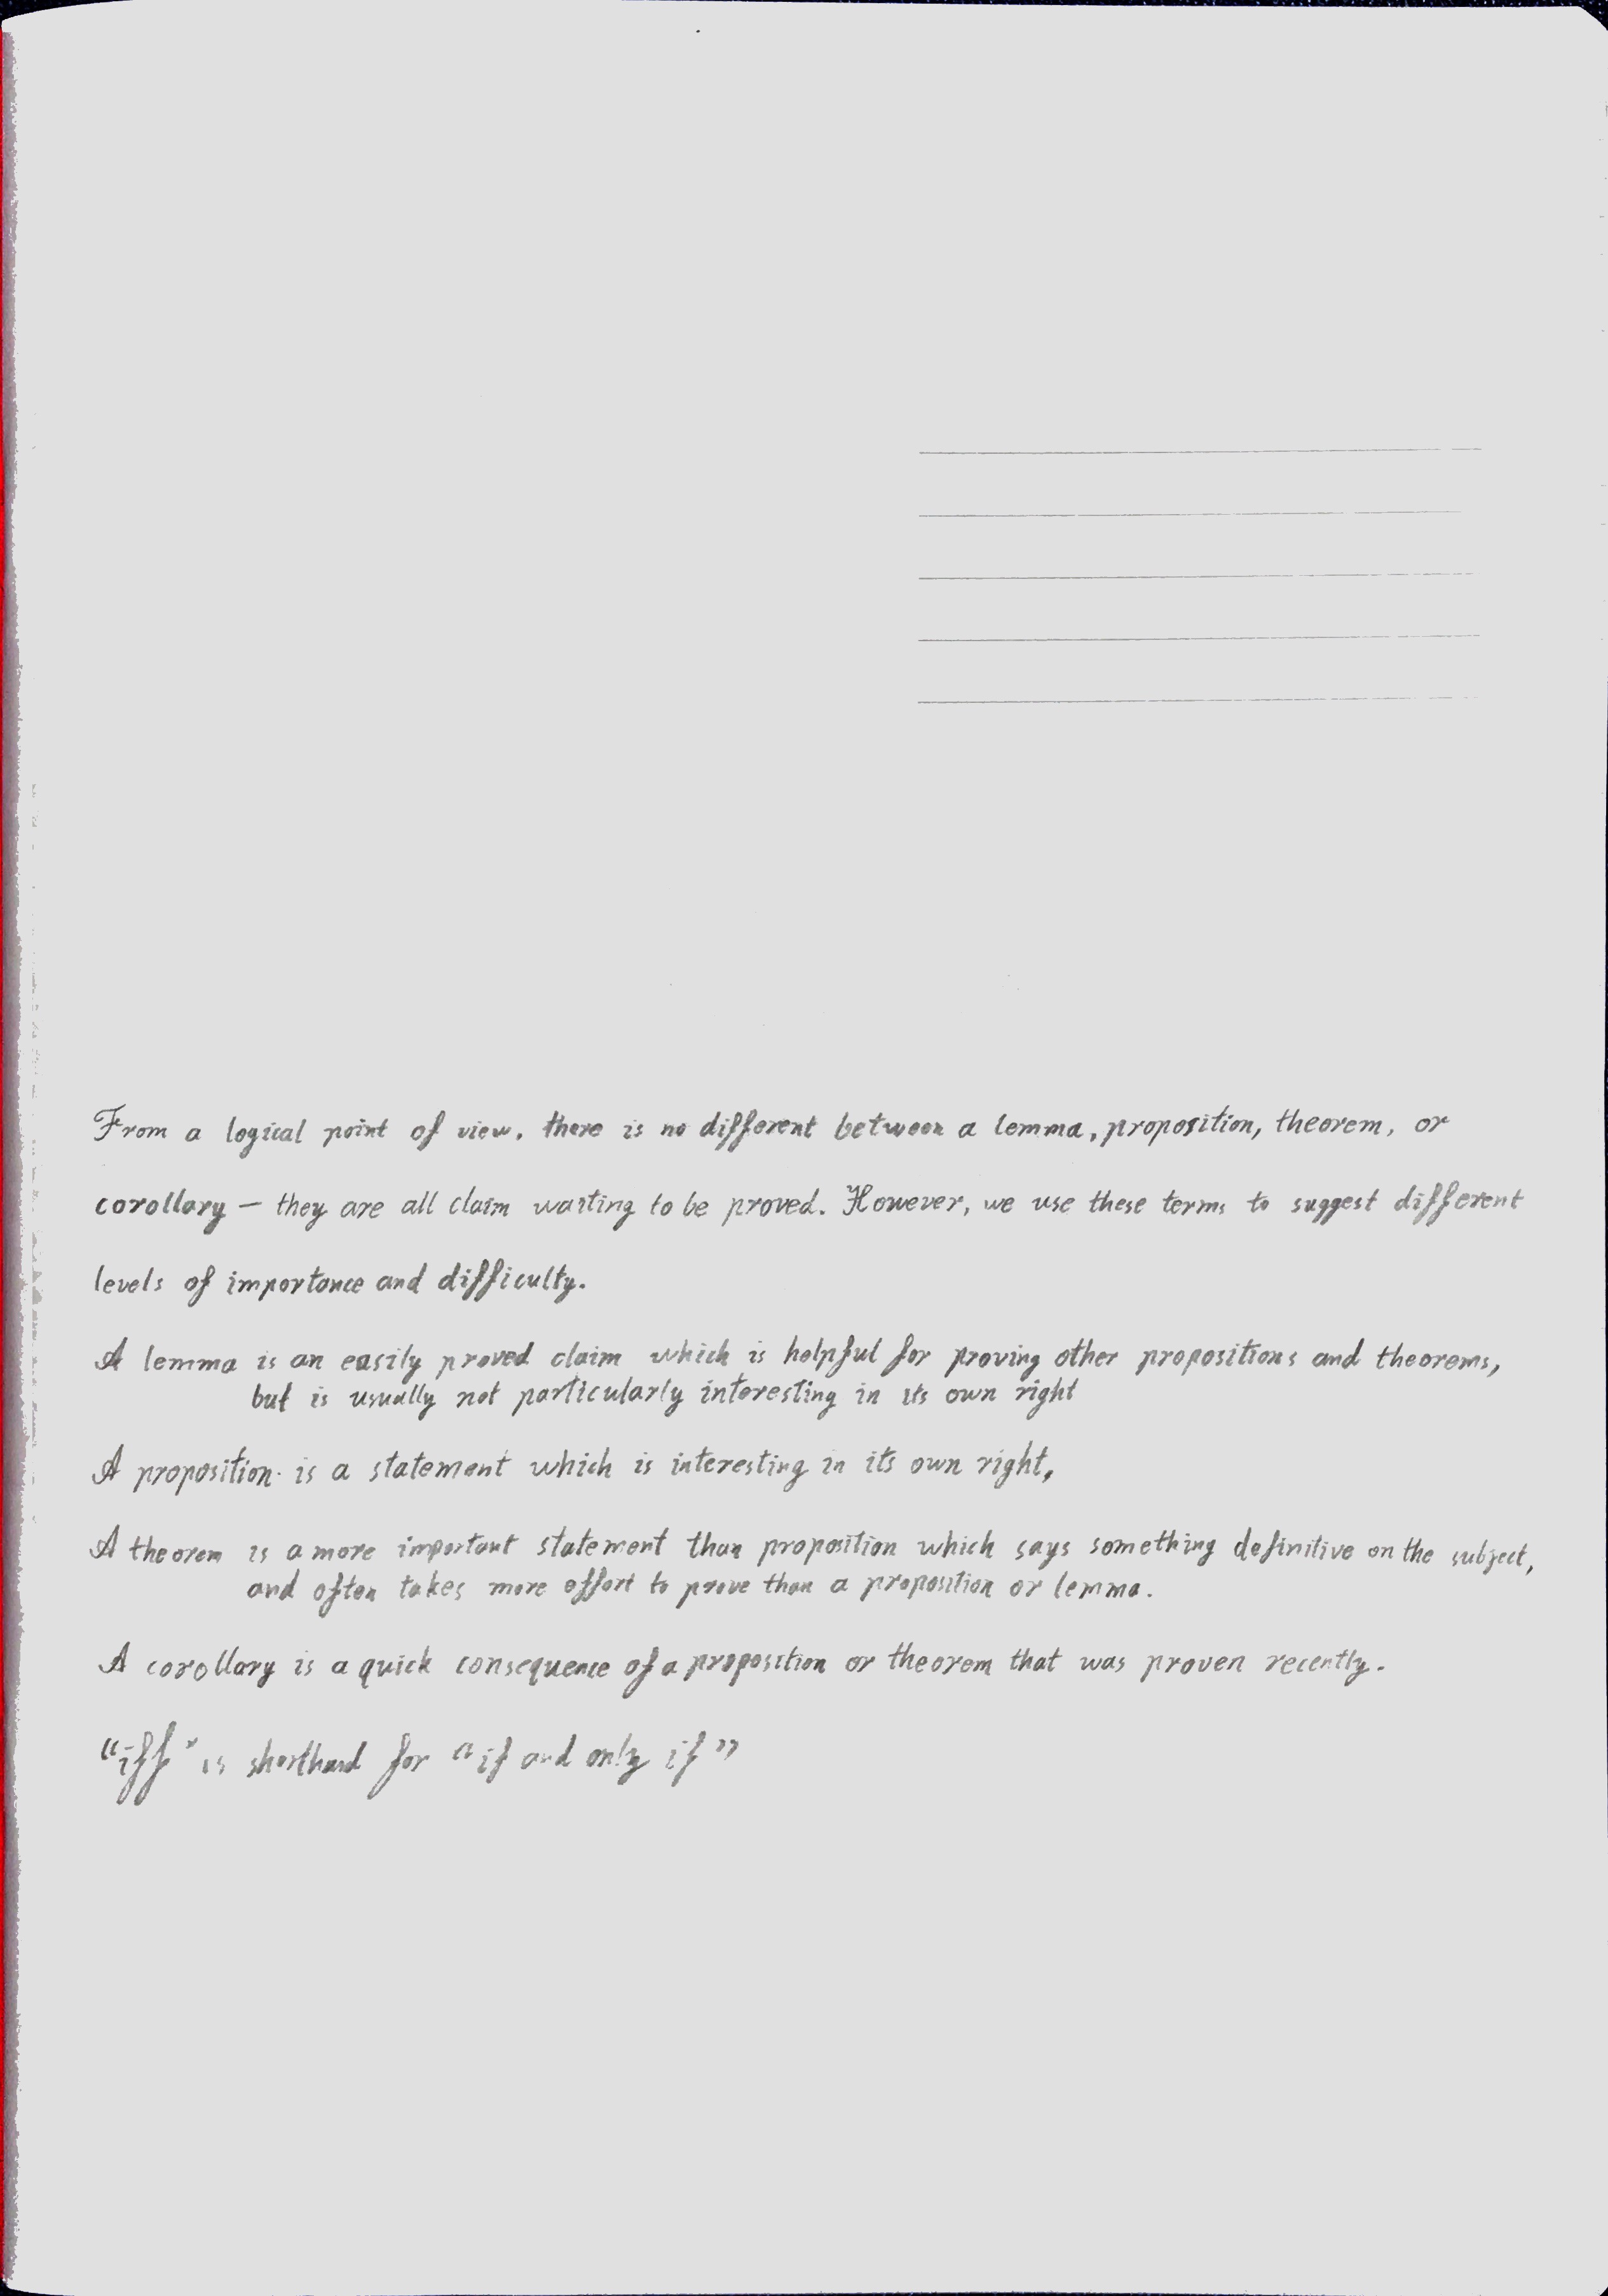 From a logical point of view, there is no different between a lemma, proposition, theorem, or
corollary – they are all claim waiting to be proved. However, we use these terms to suggest different
levels of importance and difficulty.
A lemma is an easily proved claim which is helpful for proving other propositions and theorems,
but is usually not particularly interesting in its own right
A proposition is a statement which is interesting in its own right,
A theorem is a more important statement than proposition which says something definitive on the subject,
and often takes more effort to prove than a proposition or lemma.
A corollary is a quick consequence of a proposition or theorem that was proven recently.
“iff” is shorthand for “if and only if”